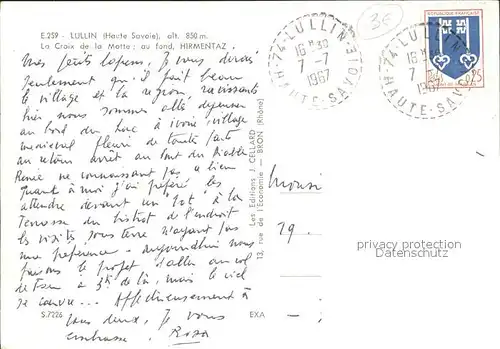 E.259 - LULLIN (Haute Savoie), alt. 850 m.
La Croix de la Motte ; au fond, HIRMENTAZ.
Mes petits lapins, Je vous dirais
seulement que il fait beau
le village et la région, ravissants
hier nous sommes allés déjeuner
au bord du lac à ivoire, village
médiéval fleuri de toute part
au retour arrêt au Pont du Diable
Renée ne connaissant pas ce lieu
quant à moi j'ai préféré les
attendre devant un pot à la
Terrasse du bistrot de l'endroit
les visites sous terre n'ayant pas
ma préférence - aujourd'hui nous
faisons le projet d'aller au col
de à 3k de là, mais le ciel
se couvre... Affectueusement à
vous deux, Je vous
embrasse. Rosa
S.7226
EXA
Les Editions J. CELLARD
13, rue de l'Economie — BRON (Rhône)
3E
H-74-LULLIN
16H30
7-7
1967
HAUTE-SAVOIE
H-74-LULLIN
16H30
7
1967
HAUTE-SAVOIE
REPUBLIQUE FRANÇAISE
0,25
Monsi
29.
privacy protection
Datenschutz